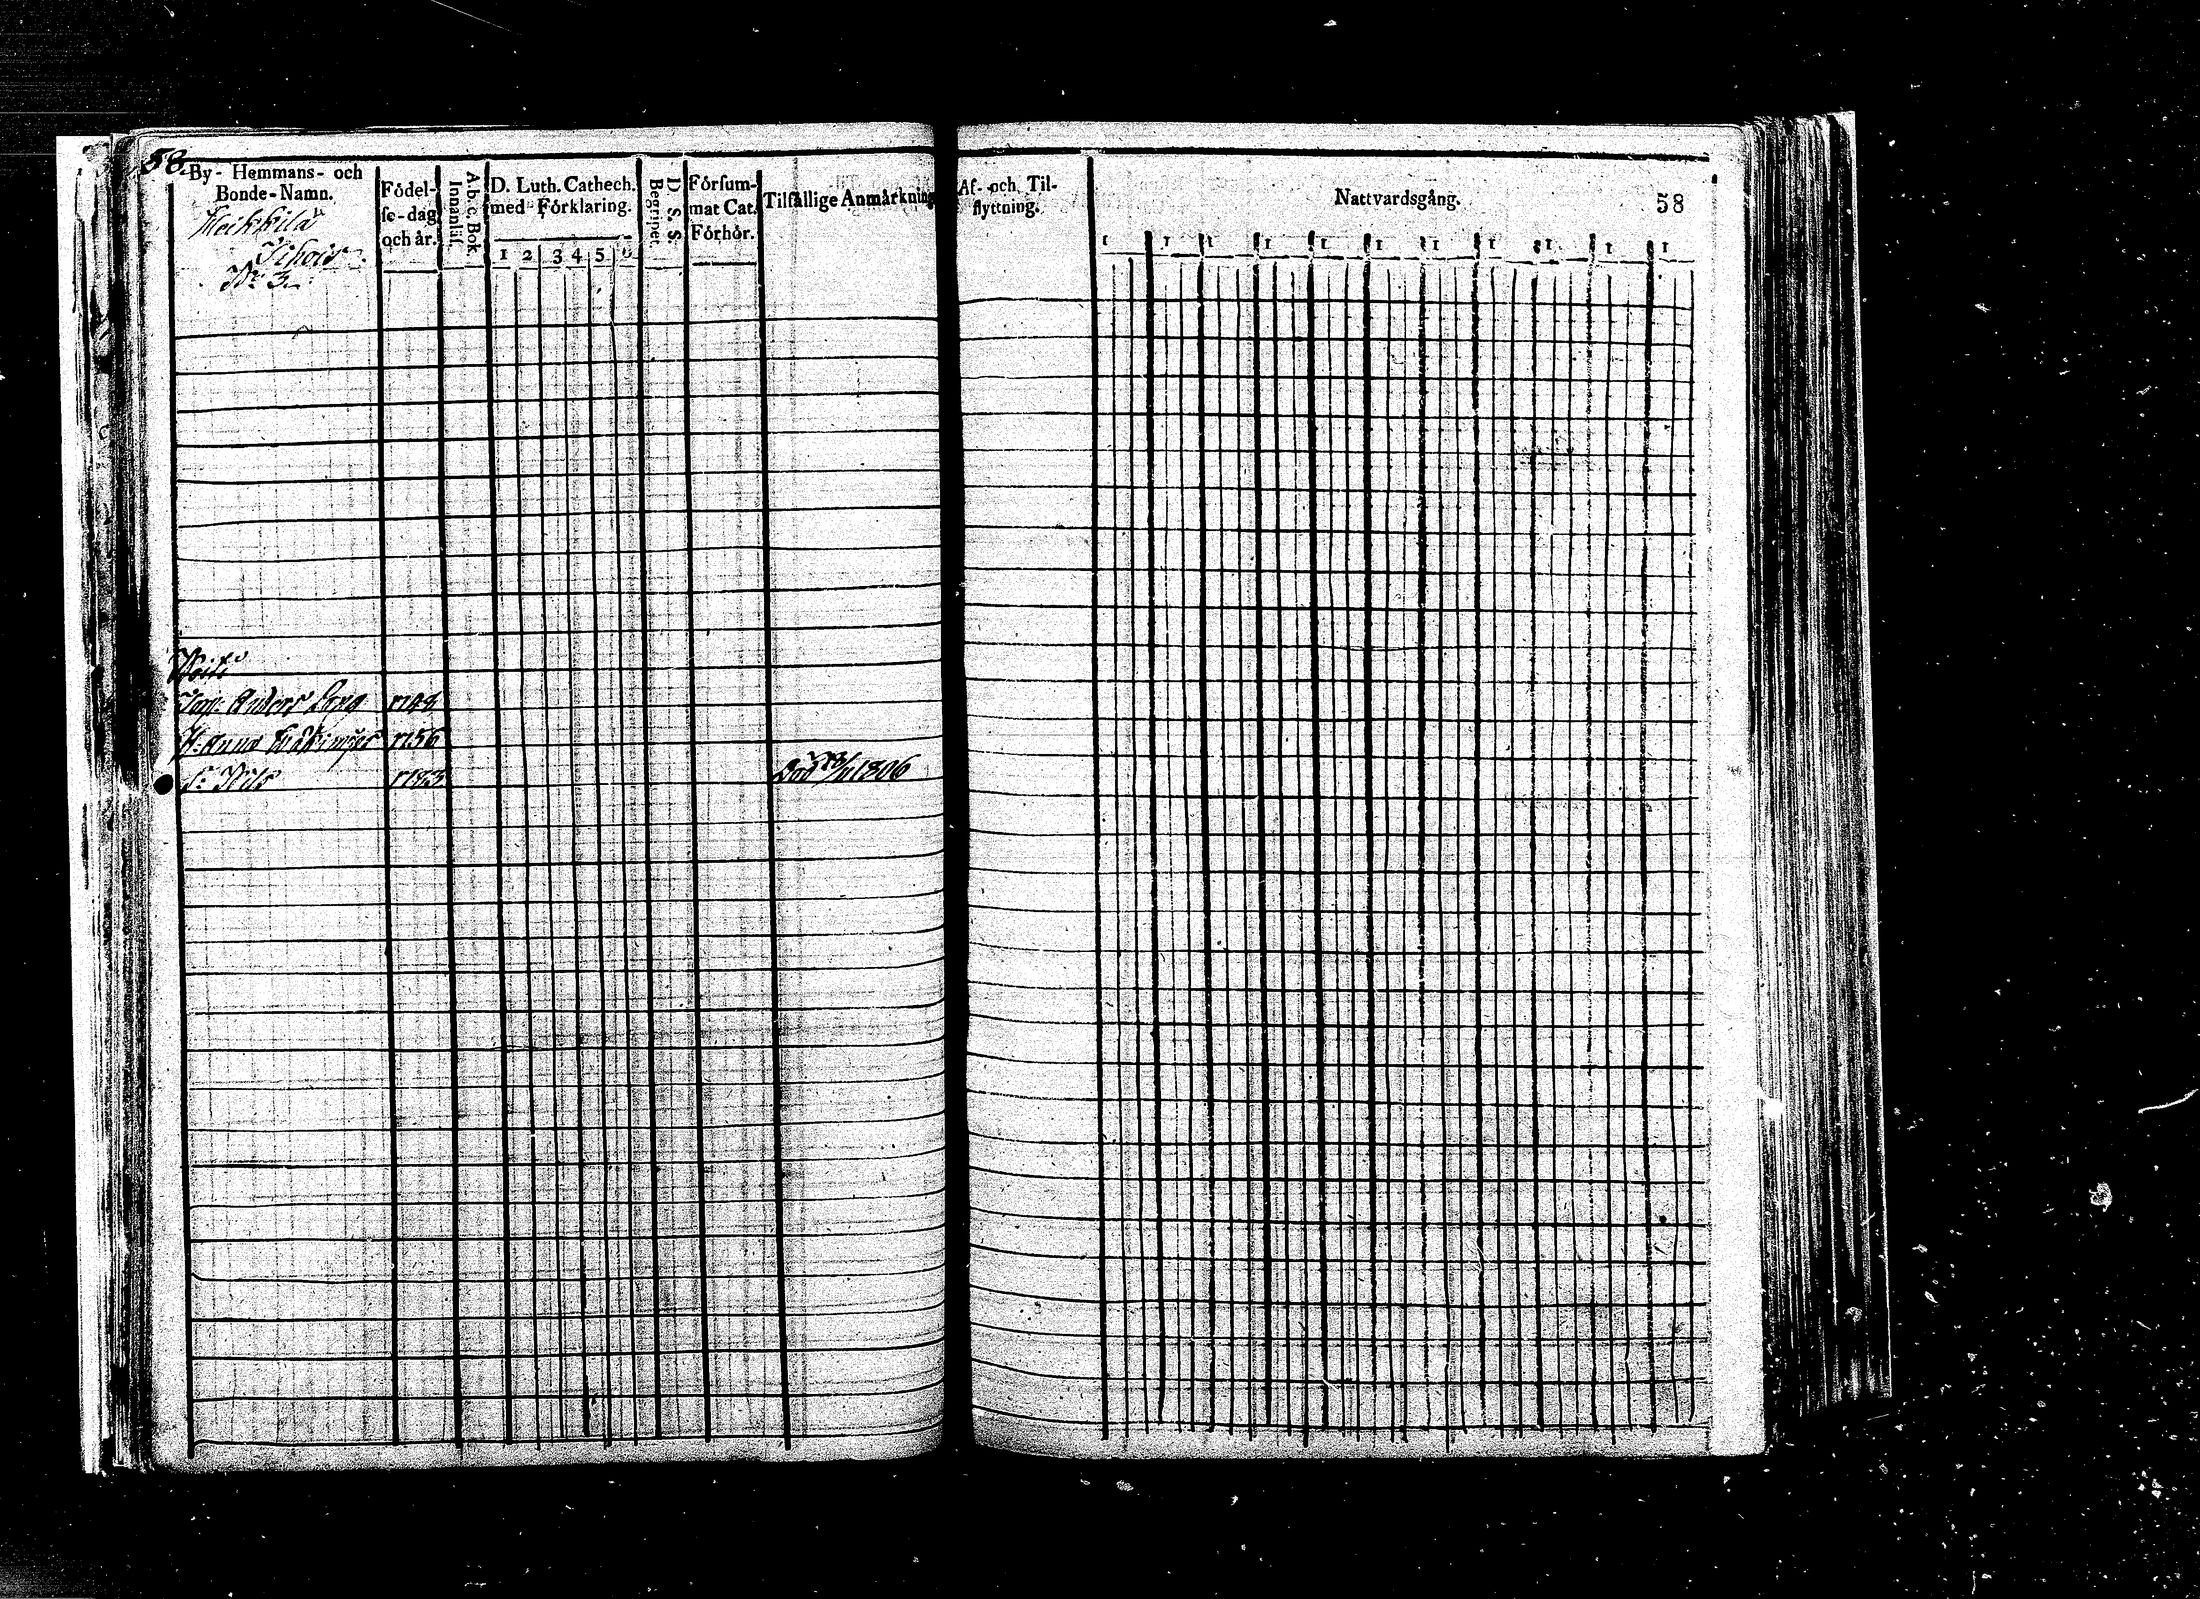 58.
By- Hemmans- och
Bonde-Namn.
Födel-
se-dag
och år.
A.b.c. Bok.
Innanläs.
D. Luth. Cathech.
med Förklaring.
1 2 3 4 5 6
D. S. S.
Begripet.
Försum-
mat Cat.
Förhör.
Tilfällige Anmärkning
Heikkilä
N: 3.
Anders Lang 1748
H: Anna 1756
S: Nils 1783 Död 1806
Af- och Til-
flyttning.
Nattvardsgång.
58
1 1 1 1 1 1 1 1 1 1 1